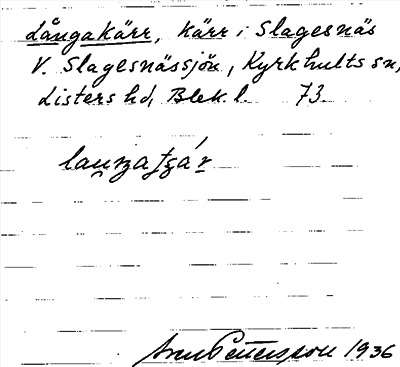 Långakärr, kärr i Slagesnäs
V. Slagesnässjön, Kyrkhults sn,
Listers hd, Blek. l. 73.
Sven Pettersson 1936